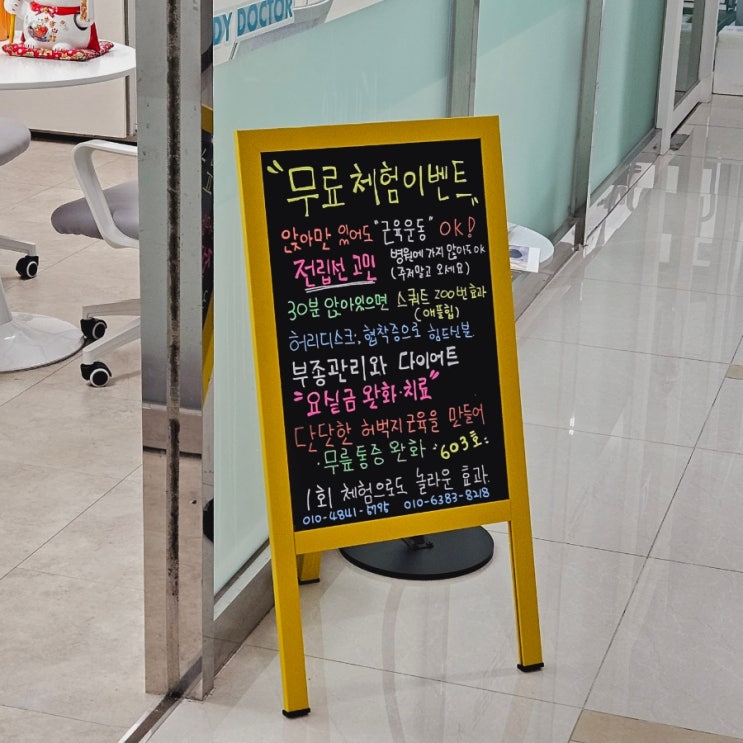 DY DOCTOR
"무료 체험이벤트"
앉아만 있어도 "근육운동" OK!
전립선 고민 병원에 가지 않아도 OK
(주저말고 오세요)
30분 앉아있으면 스쿼트 200번 효과
(애플힙)
허리디스크, 협착증으로 힘드신분.
부종관리와 다이어트
"요실금 완화·치료"
단단한 허벅지근육을 만들어
·무릎통증 완화· 603호:
1회 체험으로도 놀라운 효과.
010-4841-5795 010-6383-8218